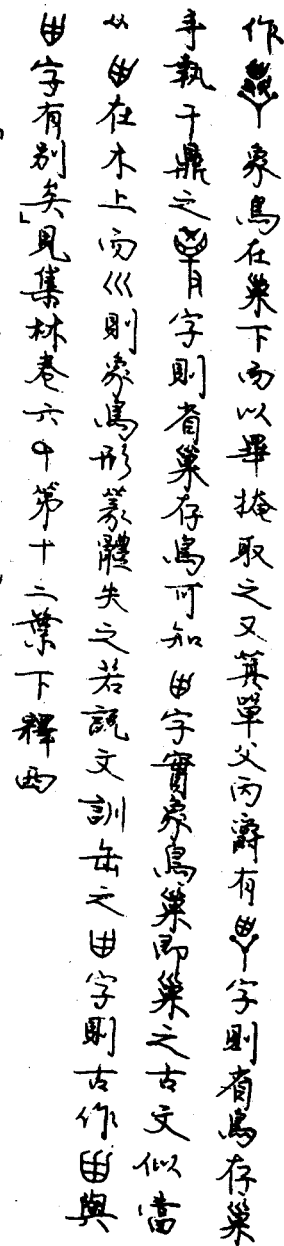 作象鳥在巢下而以畢掩取之又箕單父丙爵有字則省鳥存巢
手執干鼎之字則省巢存鳥可知甶字實象鳥巢即巢之古文似當
从甶在木上而巛則象鳥形篆體失之若說文訓缶之甶字則古作甶與
甶字有別矣」見集林卷六中第十二葉下釋西